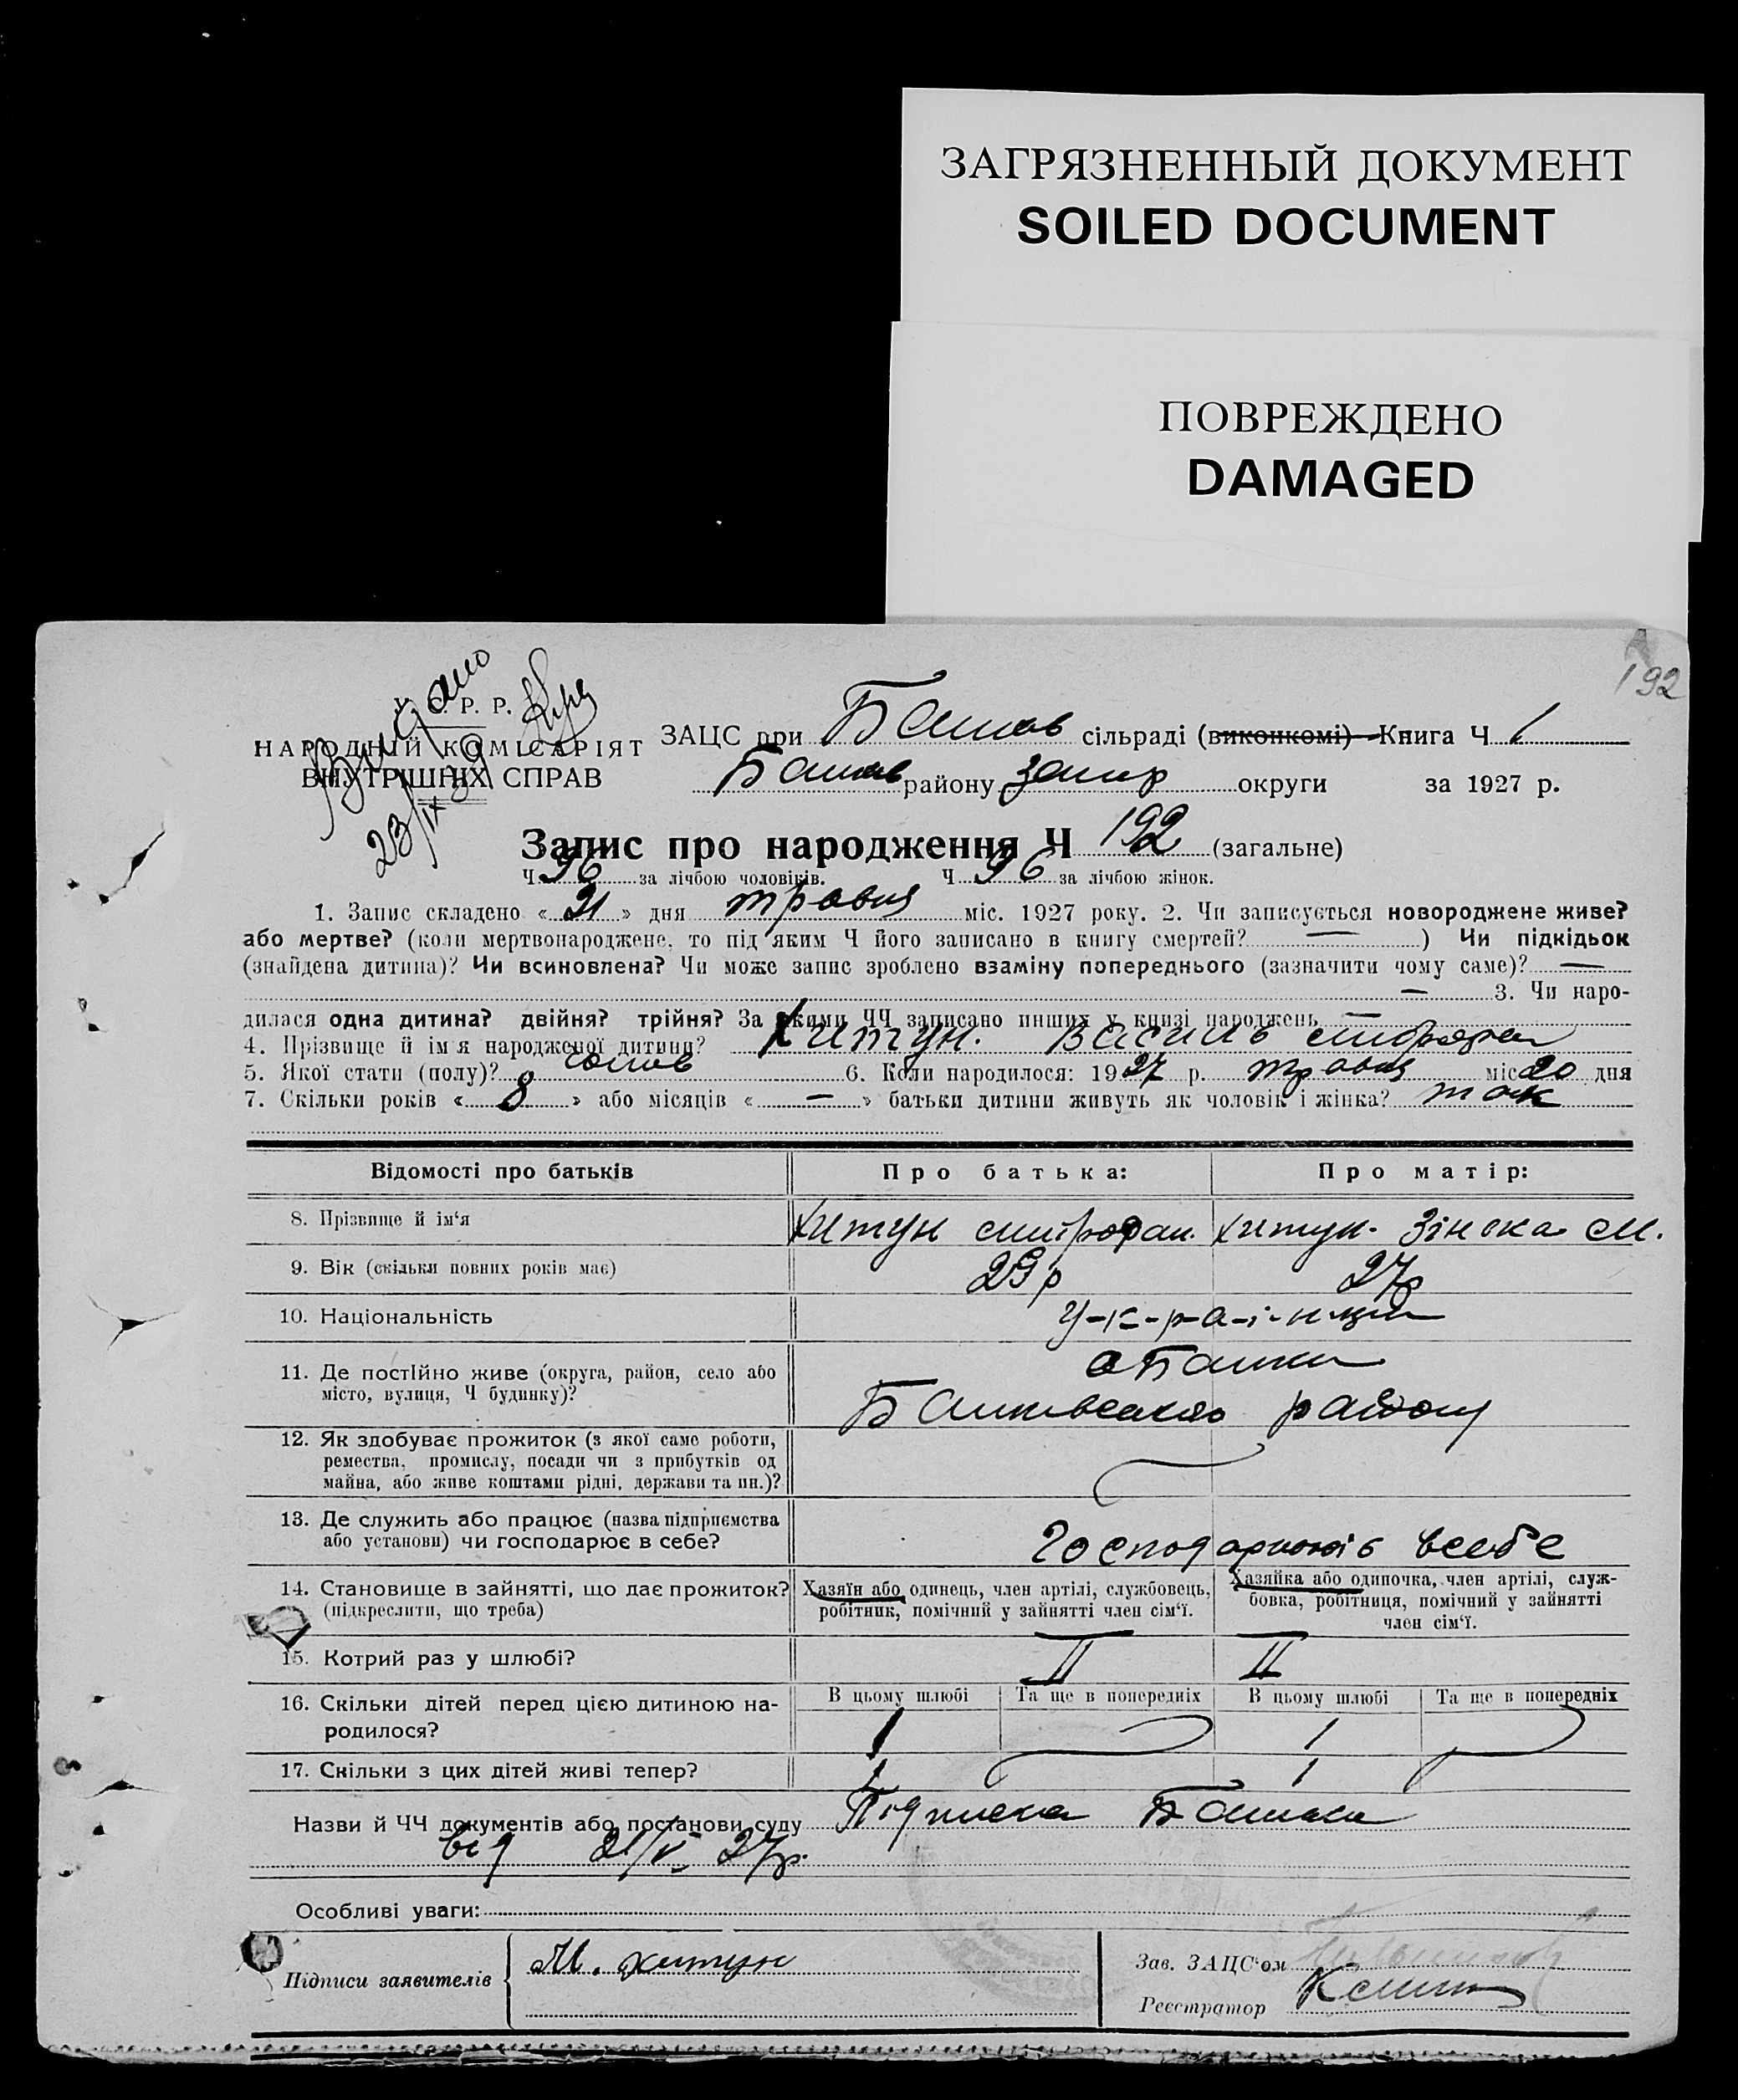 ЗАГРЯЗНЕННЫЙ ДОКУМЕНТ
SOILED DOCUMENT
ПОВРЕЖДЕНО
DAMAGED
192
Видано
23/IX 39
У. С. Р. Р.
НАРОДНІЙ КОМІСАРІЯТ
ВНУТРІШНІХ СПРАВ
ЗАЦС при Башков сільраді (виконкомі) Книга Ч 1
Башков району Запор округи за 1927 р.
Запис про народження Ч 192 (загальне)
Ч 96 за лічбою чоловіків. Ч 96 за лічбою жінок.
1. Запис складено « 21 » дня травня міс. 1927 року. 2. Чи записується новороджене живе?
або мертве? (коли мертвонароджене, то під яким Ч його записано в книгу смертей? — ) Чи підкідьок
(знайдена дитина)? Чи всиновлена? Чи може запис зроблено взаміну попереднього (зазначити чому саме)? —
— 3. Чи наро-
дилася одна дитина? двійня? трійня? За якими ЧЧ записано инших у книзі народжень —
4. Прізвище й ім'я народженої дитини? Хитун. Василь Митрофан
5. Якої стати (полу)? 6. Коли народилося: 1927 р. травня міс 20 дня
7. Скільки років « 8 » або місяців « — » батьки дитини живуть як чоловік і жінка? так
Відомості про батьків Про батька: Про матір:
8. Прізвище й ім'я Хитун Митрофан. Хитун. Зінька М.
9. Вік (скільки повних років має) 29 р 27 р
10. Національність У-к-р-а-ї-нці
11. Де постійно живе (округа, район, село або
місто, вулиця, Ч будинку)?
Башківського району
12. Як здобуває прожиток (з якої саме роботи,
ремества, промислу, посади чи з прибутків од
майна, або живе коштами рідні, держави та ин.)?
13. Де служить або працює (назва підприємства
або установи) чи господарює в себе? Господарюють в себе
14. Становище в зайнятті, що дає прожиток?
(підкреслити, що треба)
Хазяїн або одинець, член артілі, службовець,
робітник, помічний у зайнятті член сім'ї.
Хазяйка або одиночка, член артілі, служ-
бовка, робітниця, помічний у зайнятті
член сім'ї.
15. Котрий раз у шлюбі? II II
16. Скільки дітей перед цією дитиною на-
родилося?
В цьому шлюбі Та ще в попередніх В цьому шлюбі Та ще в попередніх
1 1
17. Скільки з цих дітей живі тепер? 1 1
Назви й ЧЧ документів або постанови суду Підписка Батька
від 21/V 27 р.
Особливі уваги:
Підписи заявителів М. Хитун
Зав. ЗАЦС'ом
Реєстратор